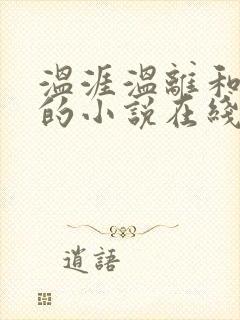 温涯温離和
的小說在綫
逍語